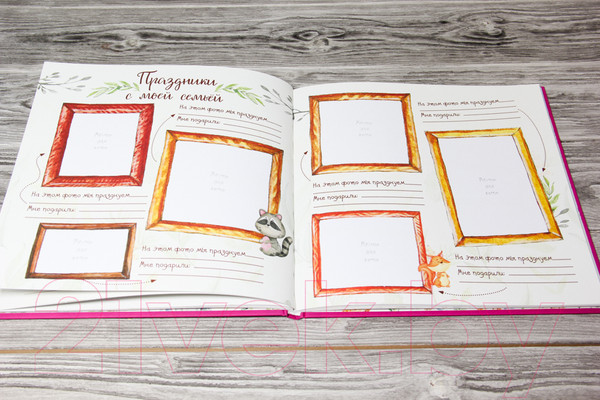 Праздники
с моей семьей
На этом фото мы празднуем
Мне подарили:
На этом фото мы празднуем
Мне подарили:
На этом фото мы празднуем
Мне подарили:
На этом фото мы празднуем
Мне подарили:
На этом фото мы празднуем
Мне подарили:
На этом фото мы празднуем
Мне подарили:
21vek.by